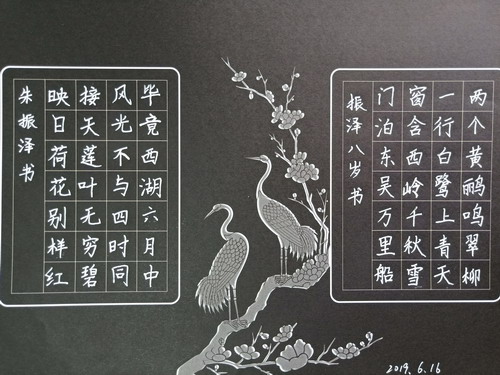 两个黄鹂鸣翠柳
一行白鹭上青天
窗含西岭千秋雪
门泊东吴万里船
振泽八岁书
毕竟西湖六月中
风光不与四时同
接天莲叶无穷碧
映日荷花别样红
朱振泽书
2019.6.16